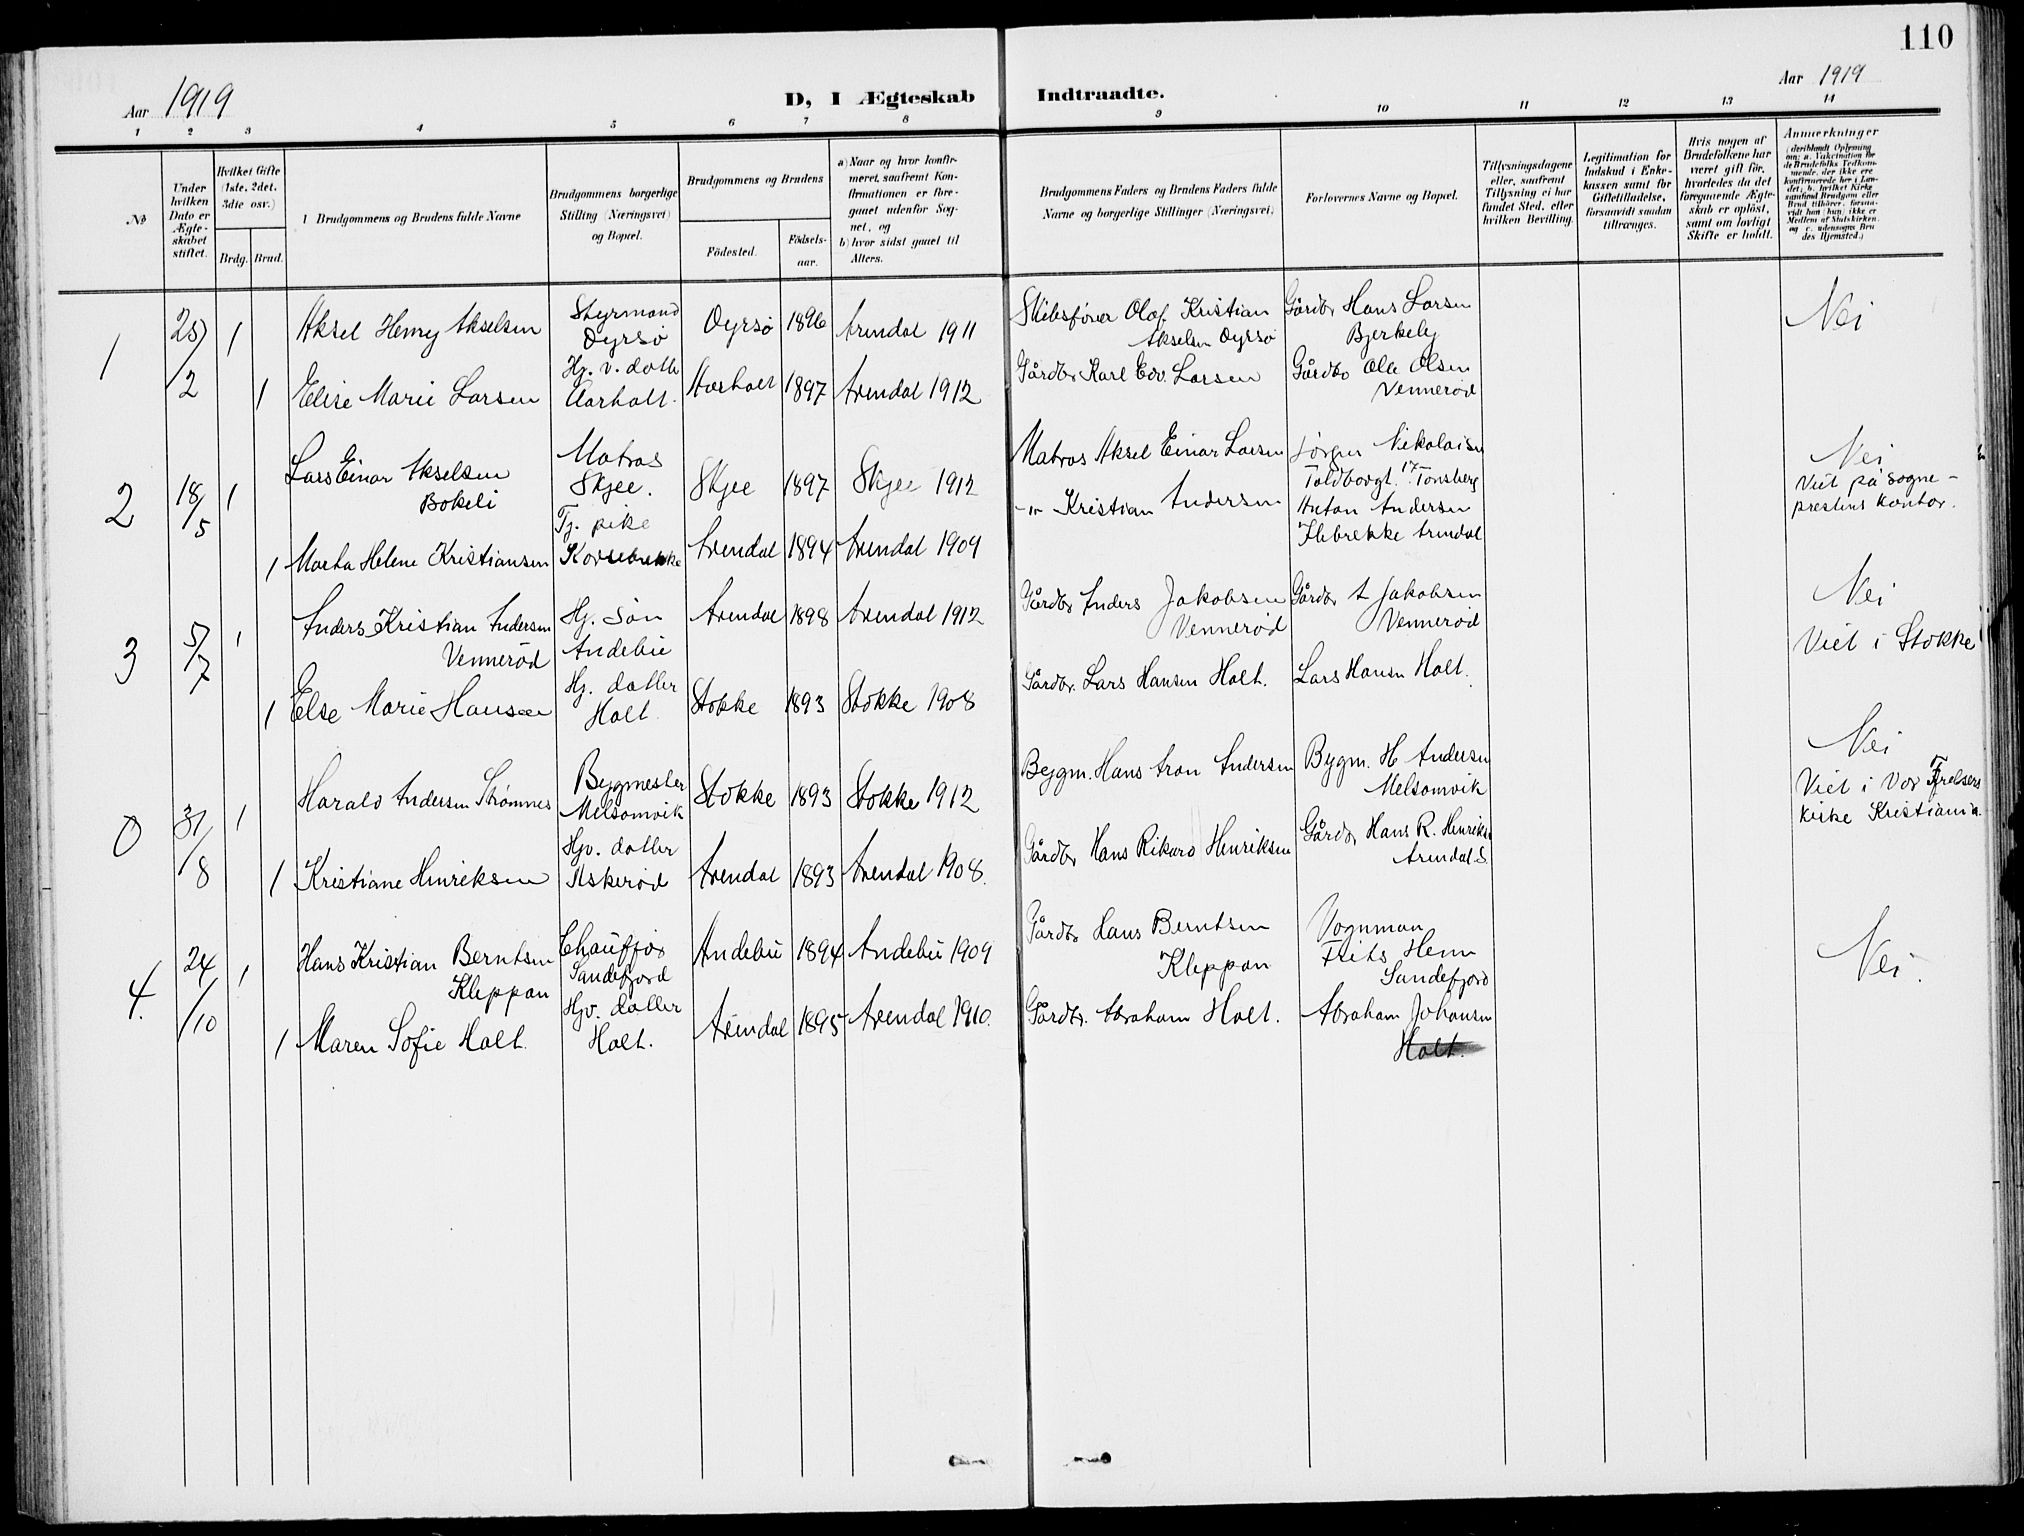 110
Aar 1919
D, I Ægteskab Indtraadte.
Aar 1919
1 2 3 4 5 6 7 8 9 10 11 12 13 14
No
Under hvilken Dato er Ægteskabet stiftet.
Hvilket Gifte (1ste, 2det, 3die osv.)
Brdg. Brud.
Brudgommens og Brudens fulde Navne
Brudgommens borgerlige Stilling (Næringsvei) og Bopæl.
Brudgommens og Brudens
Fødested.
Fødsels-aar.
a) Naar og hvor konfirmeret, saafremt Konfirmationen er foregaaet udenfor Sognet, og
b) hvor sidst gaaet til Alters.
Brudgommens Faders og Brudens Faders fulde Navne og borgerlige Stillinger (Næringsvei)
Forlovernes Navne og Bopæl.
Tillysningsdagene eller, saafremt Tillysning ei har fundet Sted, efter hvilken Bevilling.
Legitimation for Indskud i Enkekassen samt for Giftetilladelse, forsaavidt saadan tiltrænges.
Hvis nogen af Brudefolkene har været gift før, hvorledes da det foregaaende Ægteskab er opløst, samt om lovligt Skifte er holdt.
Anmerkninger
1 25/2 1 Aksel Henry Akselsen Styrmand Oyrsø Oyrsø 1896 Arendal 1911 Skibsfører Olaf Kristian Akselsen Oyrsø Gårdbr Hans Larsen Bjerkely Nei
1 Elise Marie Larsen Hj. v. datter Aarholt. Aarholt 1897 Arendal 1912 Gårdbr Karl Edv. Larsen Gårdbr Ole Olsen Vennerød
2 18/5 1 Lars Einar Akselsen Bokeli Matros Skjee. Skjee 1897 Skjee 1912 Matros Aksel Einar Larsen Jørgen Nikolaisen Toldbodgt. 17 Tønsberg Nei
Viet på sogneprestens kontor.
1 Marta Helene Kristiansen Tj. pike Arendal 1894 Arendal 1909 -"- Kristian Andersen Anton Andersen Flebrekke Arendal
3 5/7 1 Anders Kristian Andersen Vennerød Hj. Søn Andebu Arendal 1898 Arendal 1912 Gårdbr Anders Jakobsen Vennerød Gårdbr A Jakobsen Vennerød Nei
Viet i Stokke
1 Else Marie Hansen Hj. datter Holt Stokke 1893 Stokke 1908 Gårdbr. Lars Hansen Holt. Lars Hansen Holt.
0 31/8 1 Harald Andersen Strømnes Bygmester Melsomvik Stokke 1893 Stokke 1912 Bygm. Hans Aron Andersen Bygm. H Andersen Melsomvik Nei
Viet i Vor Frelsers kirke Kristiania.
1 Kristiane Henriksen Hjv. datter Askerød Arendal 1893 Arendal 1908. Gårdbr Hans Rikard Henriksen Gårdbr Hans R. Henriks Arendal S.
4. 24/10 1 Hans Kristian Berntsen Kleppan Chauffør Sandefjord Andebu 1894 Andebu 1909 Gårdbr Hans Berntsen Kleppan Vognman Frits Hem Sandefjord Nei.
1 Maren Sofie Holt. Hjv. datter Holt. Arendal 1895 Arendal 1910. Gårdbr. Abraham Holt. Abraham Johansen Holt.